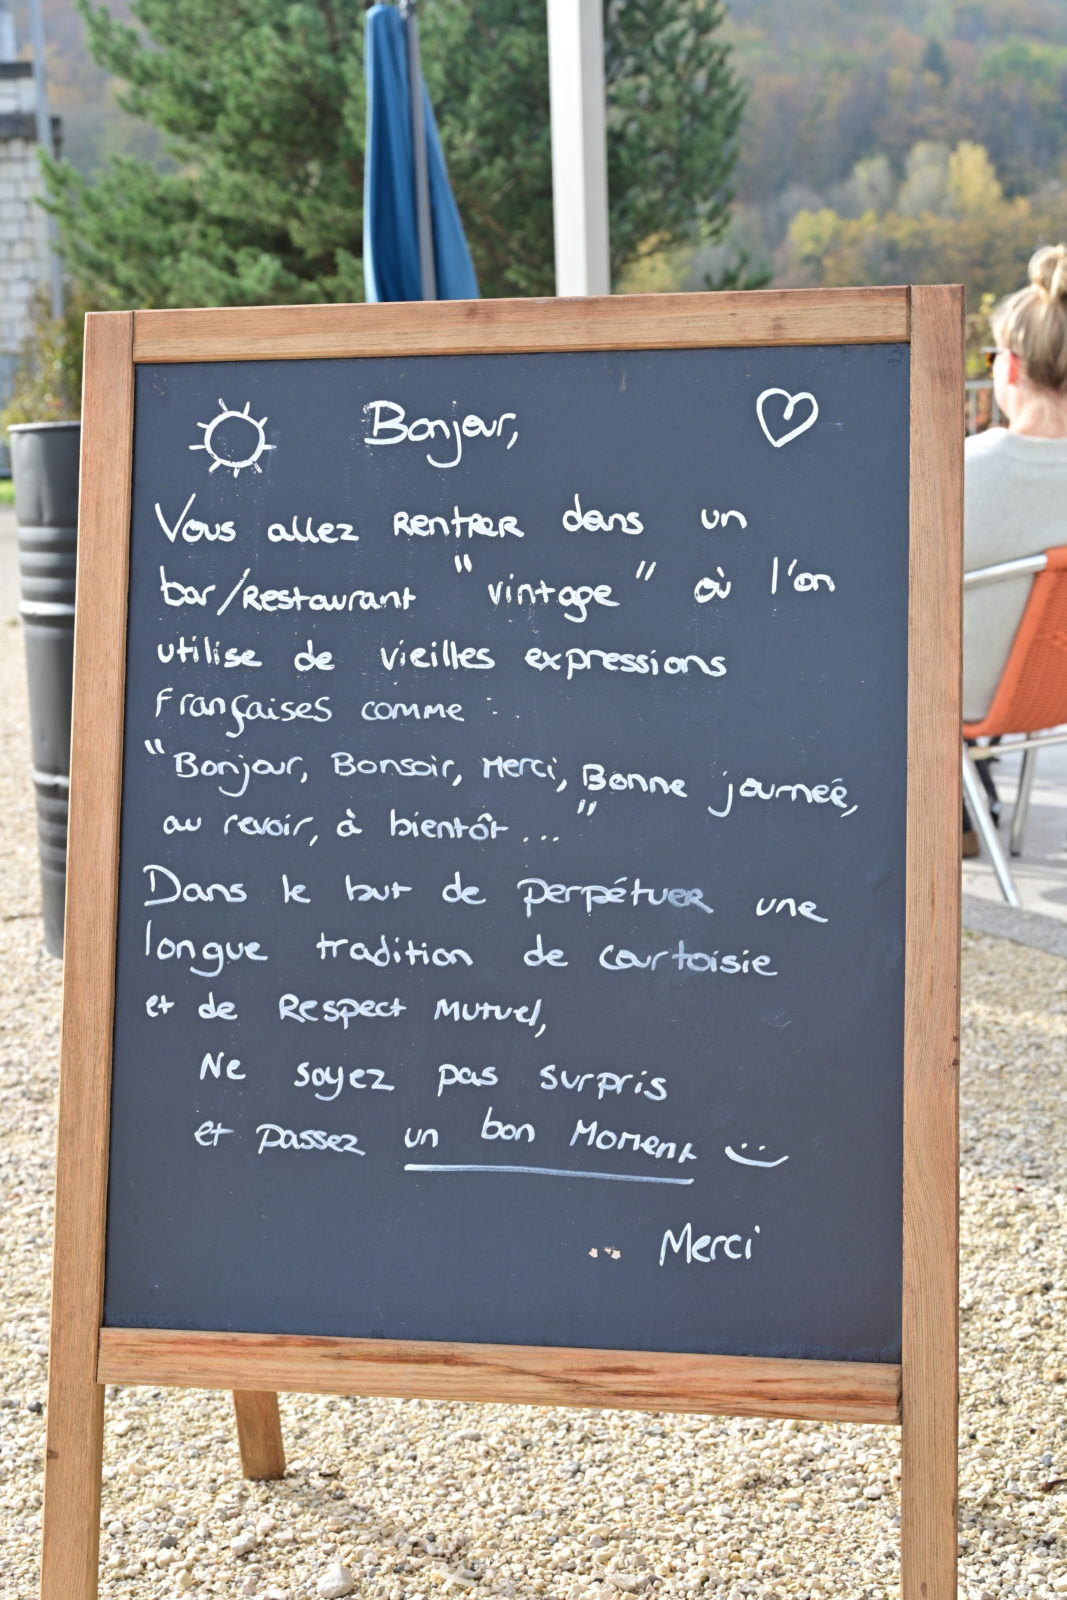 Bonjour,
Vous allez rentrer dans un
bar/restaurant "vintage" où l'on
utilise de vieilles expressions
Françaises comme :
"Bonjour, Bonsoir, Merci, Bonne journée,
au revoir, à bientôt..."
Dans le but de perpétuer une
longue tradition de courtoisie
et de Respect Mutuel,
Ne soyez pas surpris
et passez un bon Moment
Merci